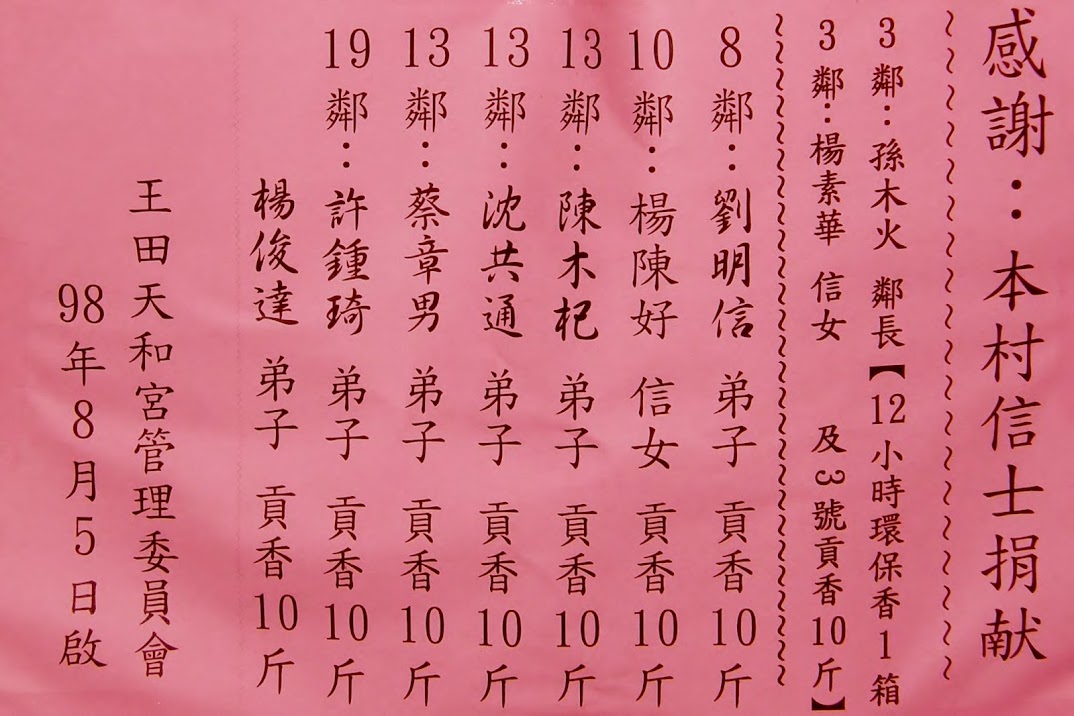 感謝：本村信士捐献
3鄰：孫木火 鄰長【12小時環保香1箱
3鄰：楊素華 信女 及3號貢香10斤】
8鄰：劉明信 弟子 貢香10斤
10鄰：楊陳好 信女 貢香10斤
13鄰：陳木杞 弟子 貢香10斤
13鄰：沈共通 弟子 貢香10斤
13鄰：蔡章男 弟子 貢香10斤
19鄰：許鍾琦 弟子 貢香10斤
楊俊達 弟子 貢香10斤
王田天和宮管理委員會
98年8月5日啟